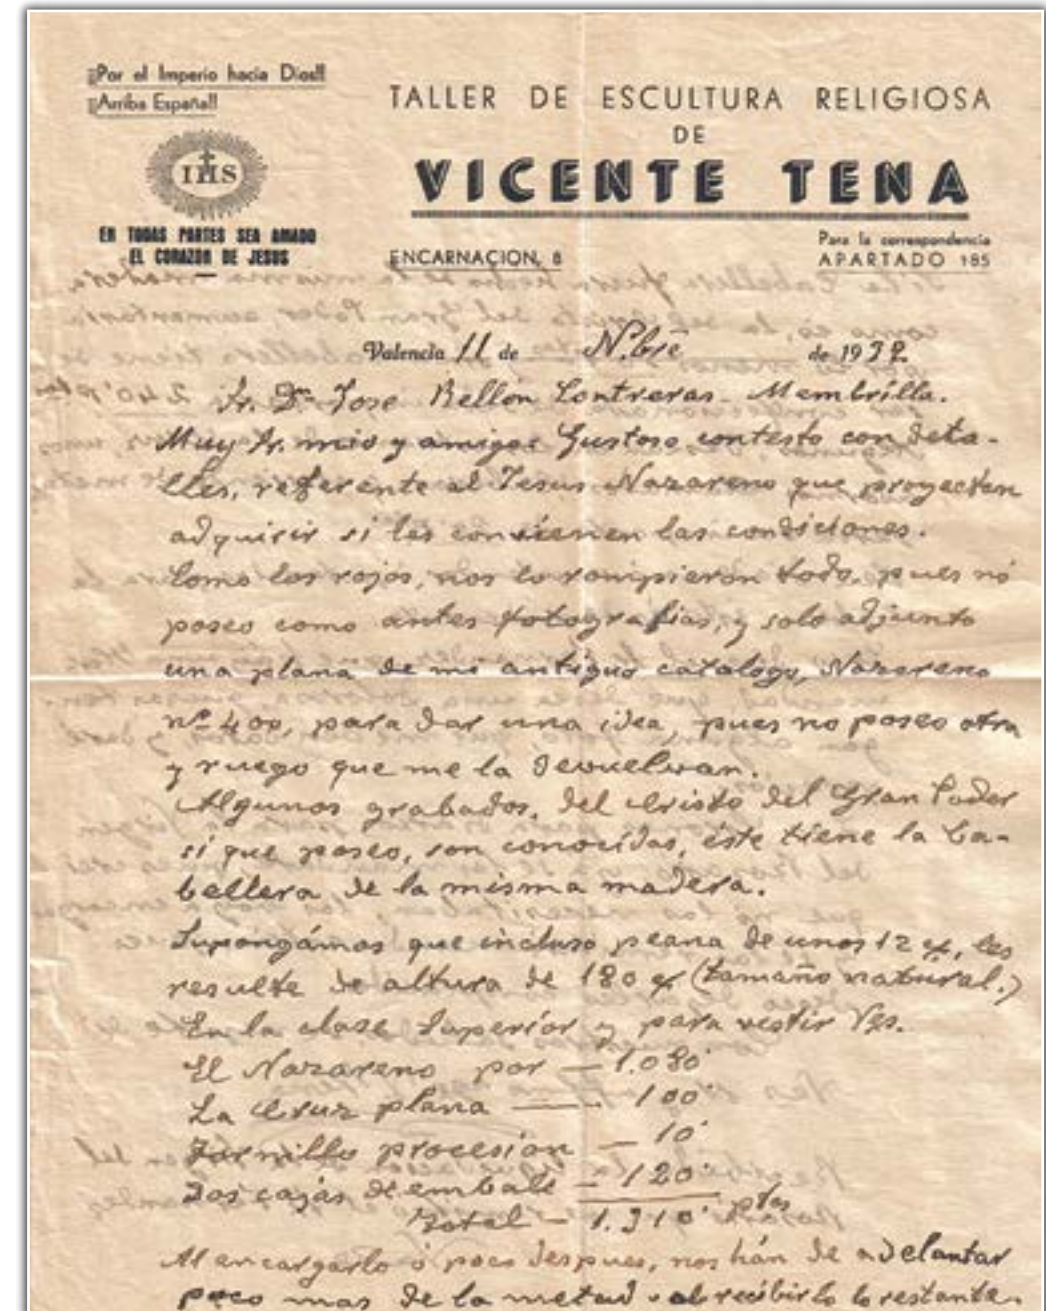 ¡¡Por el Imperio hacia Dios!!
¡¡Arriba España!!
IHS
EN TODAS PARTES SEA AMADO
EL CORAZON DE JESUS
TALLER DE ESCULTURA RELIGIOSA
DE
VICENTE TENA
ENCARNACION, 8
Para la correspondencia
APARTADO 185
Valencia 11 de N.bre de 1939.
Sr. Dn. Jose Bellón Contreras - Membrilla.
Muy Sr. mio y amigo: Gustoso contesto con deta-
lles, referente al Jesus Nazareno que proyectan
adquirir si les convienen las condiciones.
Como los rojos, nos lo rompieron todo, pues no
poseo como antes fotografias, y solo adjunto
una plana de mi antiguo catalogo, Nazareno
nº 400, para dar una idea, pues no poseo otra
y ruego que me la devuelvan.
Algunos grabados, del Cristo del Gran Poder
si que poseo, son conocidos, éste tiene la Ca-
bellera de la misma madera.
Supongámos que incluso peana de unos 12 %, les
resulte de altura de 180 % (tamaño natural.)
En la clase Superior y para vestir Vs.
El Nazareno por — 1.080'
La Cruz plana — 100'
Tornillo procesión — 10'
Dos cajas de embale — 120'
Total — 1.310' ptas
Al encargarlo ó poco despues, nos hán de adelantar
poco mas de la metad y al recibirlo lo restante.